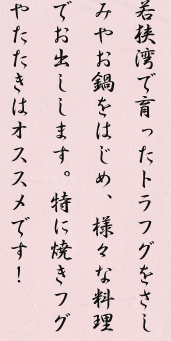 若狭湾で育ったトラフグをさし
みやお鍋をはじめ、様々な料理
でお出しします。特に焼きフグ
やたたきはオススメです！